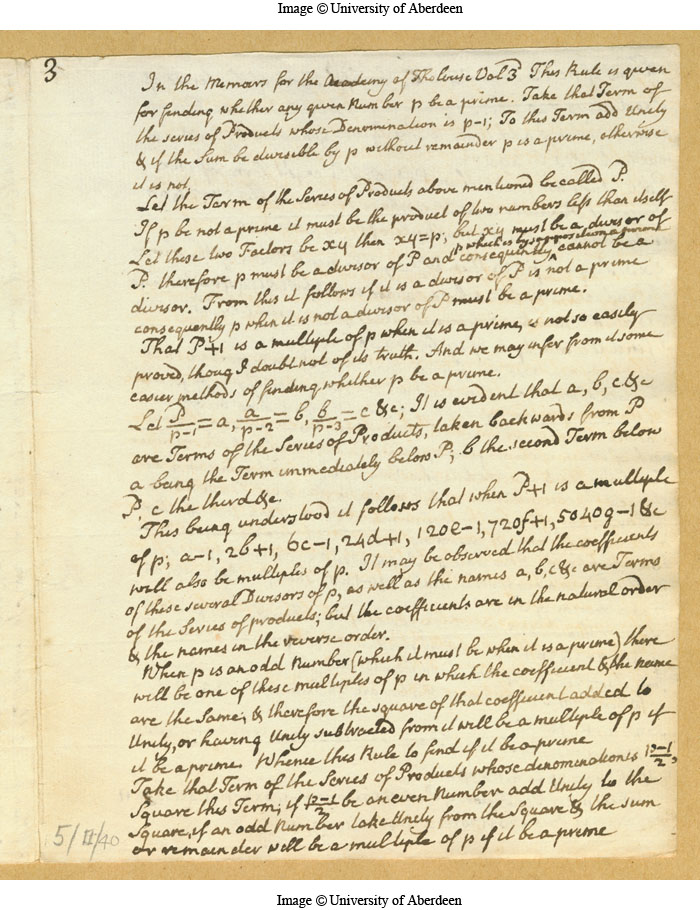 Image © University of Aberdeen
3
In the Memoirs for the Academy of Tholouse Vol 3 This Rule is given
for finding whether any given Number p be a prime. Take that Term of
the series of Products whose Denomination is p-1; To this Term add Unity
& if the Sum be divisible by p without remainder p is a prime, otherwise
it is not.
Let the Term of the Series of Products above mentioned be called P.
If p be not a prime it must be the product of two numbers less than itself
Let these two Factors be xy then xy=p; but xy must be a divisor of
P. therefore p must be a divisor of P and consequently cannot be a
p which is by supposition a prime
divisor. From this it follows if it is a divisor of P is not a prime
consequently p when it is not a divisor of P must be a prime.
That P+1 is a multiple of p when it is a prime, is not so easily
proved, thoug I doubt not of its truth. And we may infer from it some
easier methods of finding whether p be a prime.
Let P/p-1 = a, a/p-2 = b, b/p-3 = c &c; It is evident that a, b, c &c
are Terms of the Series of Products, taken backwards from P
a being the Term immediately below P; b the second Term below
P, c the third &c.
This being understood it follows that when P+1 is a multiple
of p; a-1, 2b+1, 6c-1, 24d+1, 120e-1, 720f+1, 5040g-1 &c
will also be multiples of p. It may be observed that the coefficients
of these several Divisors of p, as well as the names a, b, c &c are Terms
of the Series of products; but the coefficients are in the natural order
& the names in the reverse order.
When p is an odd Number (which it must be when it is a prime) there
will be one of these multiples of p in which the coefficient & the name
are the same; & therefore the square of that coefficient added to
Unity, or having Unity subtracted from it will be a multiple of p if
it be a prime. Whence this Rule to find if it be a prime
Take that Term of the Series of Products whose denomination is p-1/2,
Square this Term; if p-1/2 be an even Number add Unity to the
Square, if an odd Number take Unity from the Square & the sum
or remainder will be a multiple of p if it be a prime
5/II/40
Image © University of Aberdeen